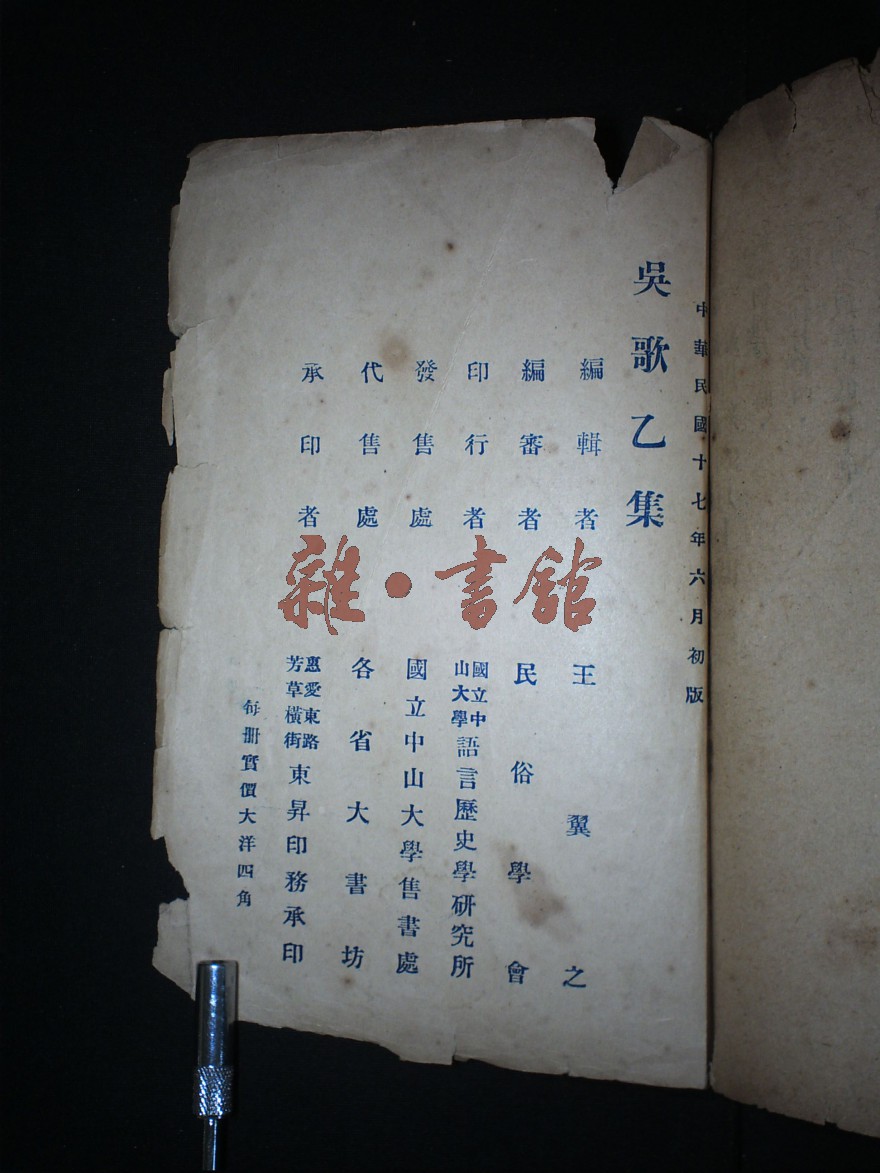 中華民國十七年六月初版
吳歌乙集
編輯者 王翼之
編審者 民俗學會
印行者 國立中山大學語言歷史學研究所
發售處 國立中山大學售書處
代售處 各省大書坊
承印者 惠愛東路芳草橫街東昇印務承印
每册實價大洋四角
雜·書館